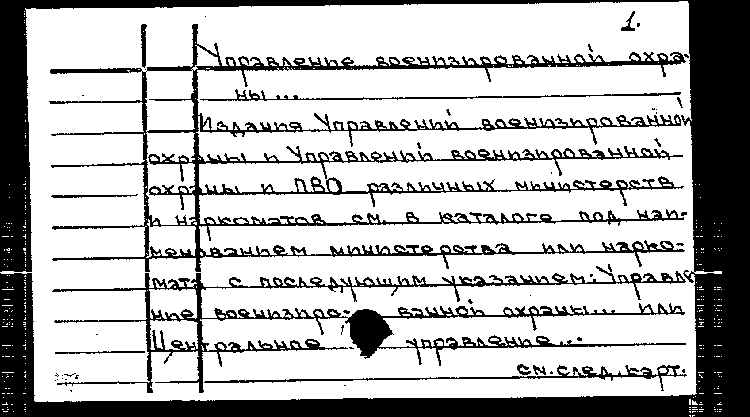 1.
Управление военизированной охра-
ны...
Издания Управлений военизированной
охраны и Управлений военизированной
охраны и ПВО различных министерств
и наркоматов см. в каталоге под наи-
менованием министерства или нарко-
мата с последующим указанием: Управле
ние военизиро- ванной охраны... или
Центральное управление...
см. след. карт.